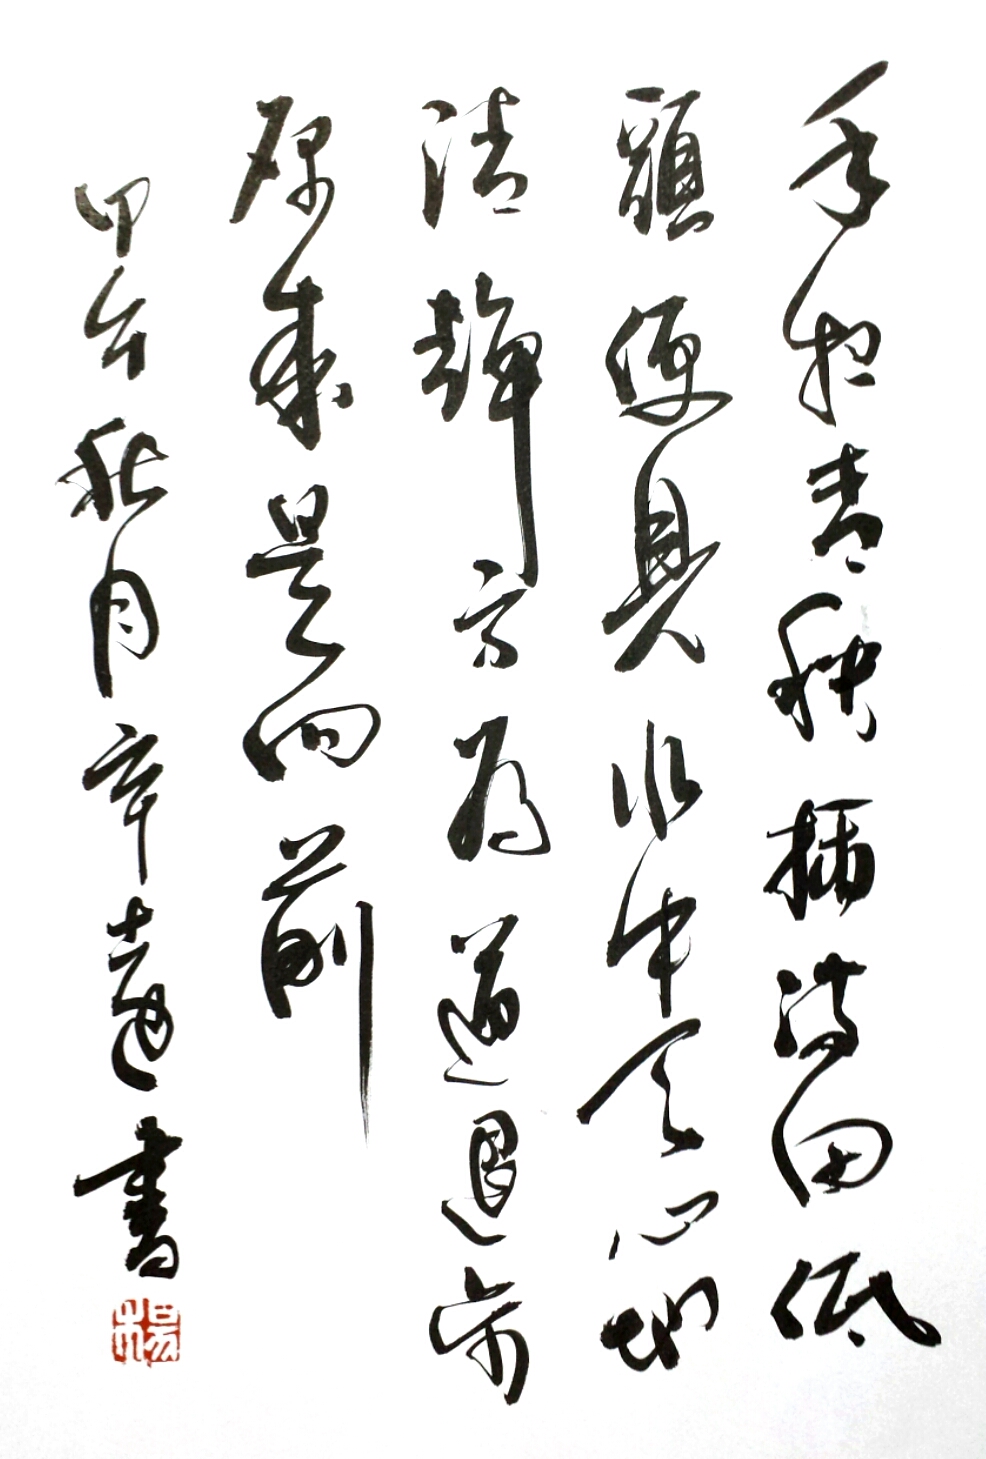 手把青秧插滿田低
頭便見水中天心地
清靜方為道退步
原來是向前
甲午秋月辛達書
楊